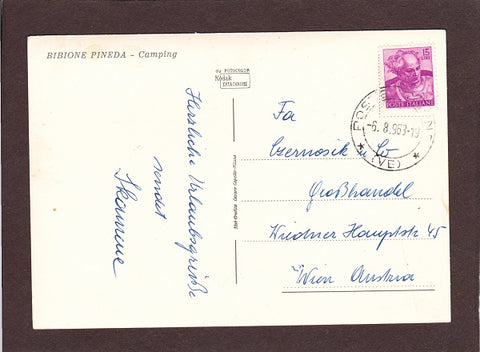 BIBIONE PINEDA - Camping
Kodak
EKTACHROME
Herzliche Urlaubsgrüße
sendet
15
LIRE
POSTE ITALIANE
-6.8.963-19
(VE)
Fa
Czernosik & Co
Großhandel
Wiedner Hauptstr 45
Wien Austria